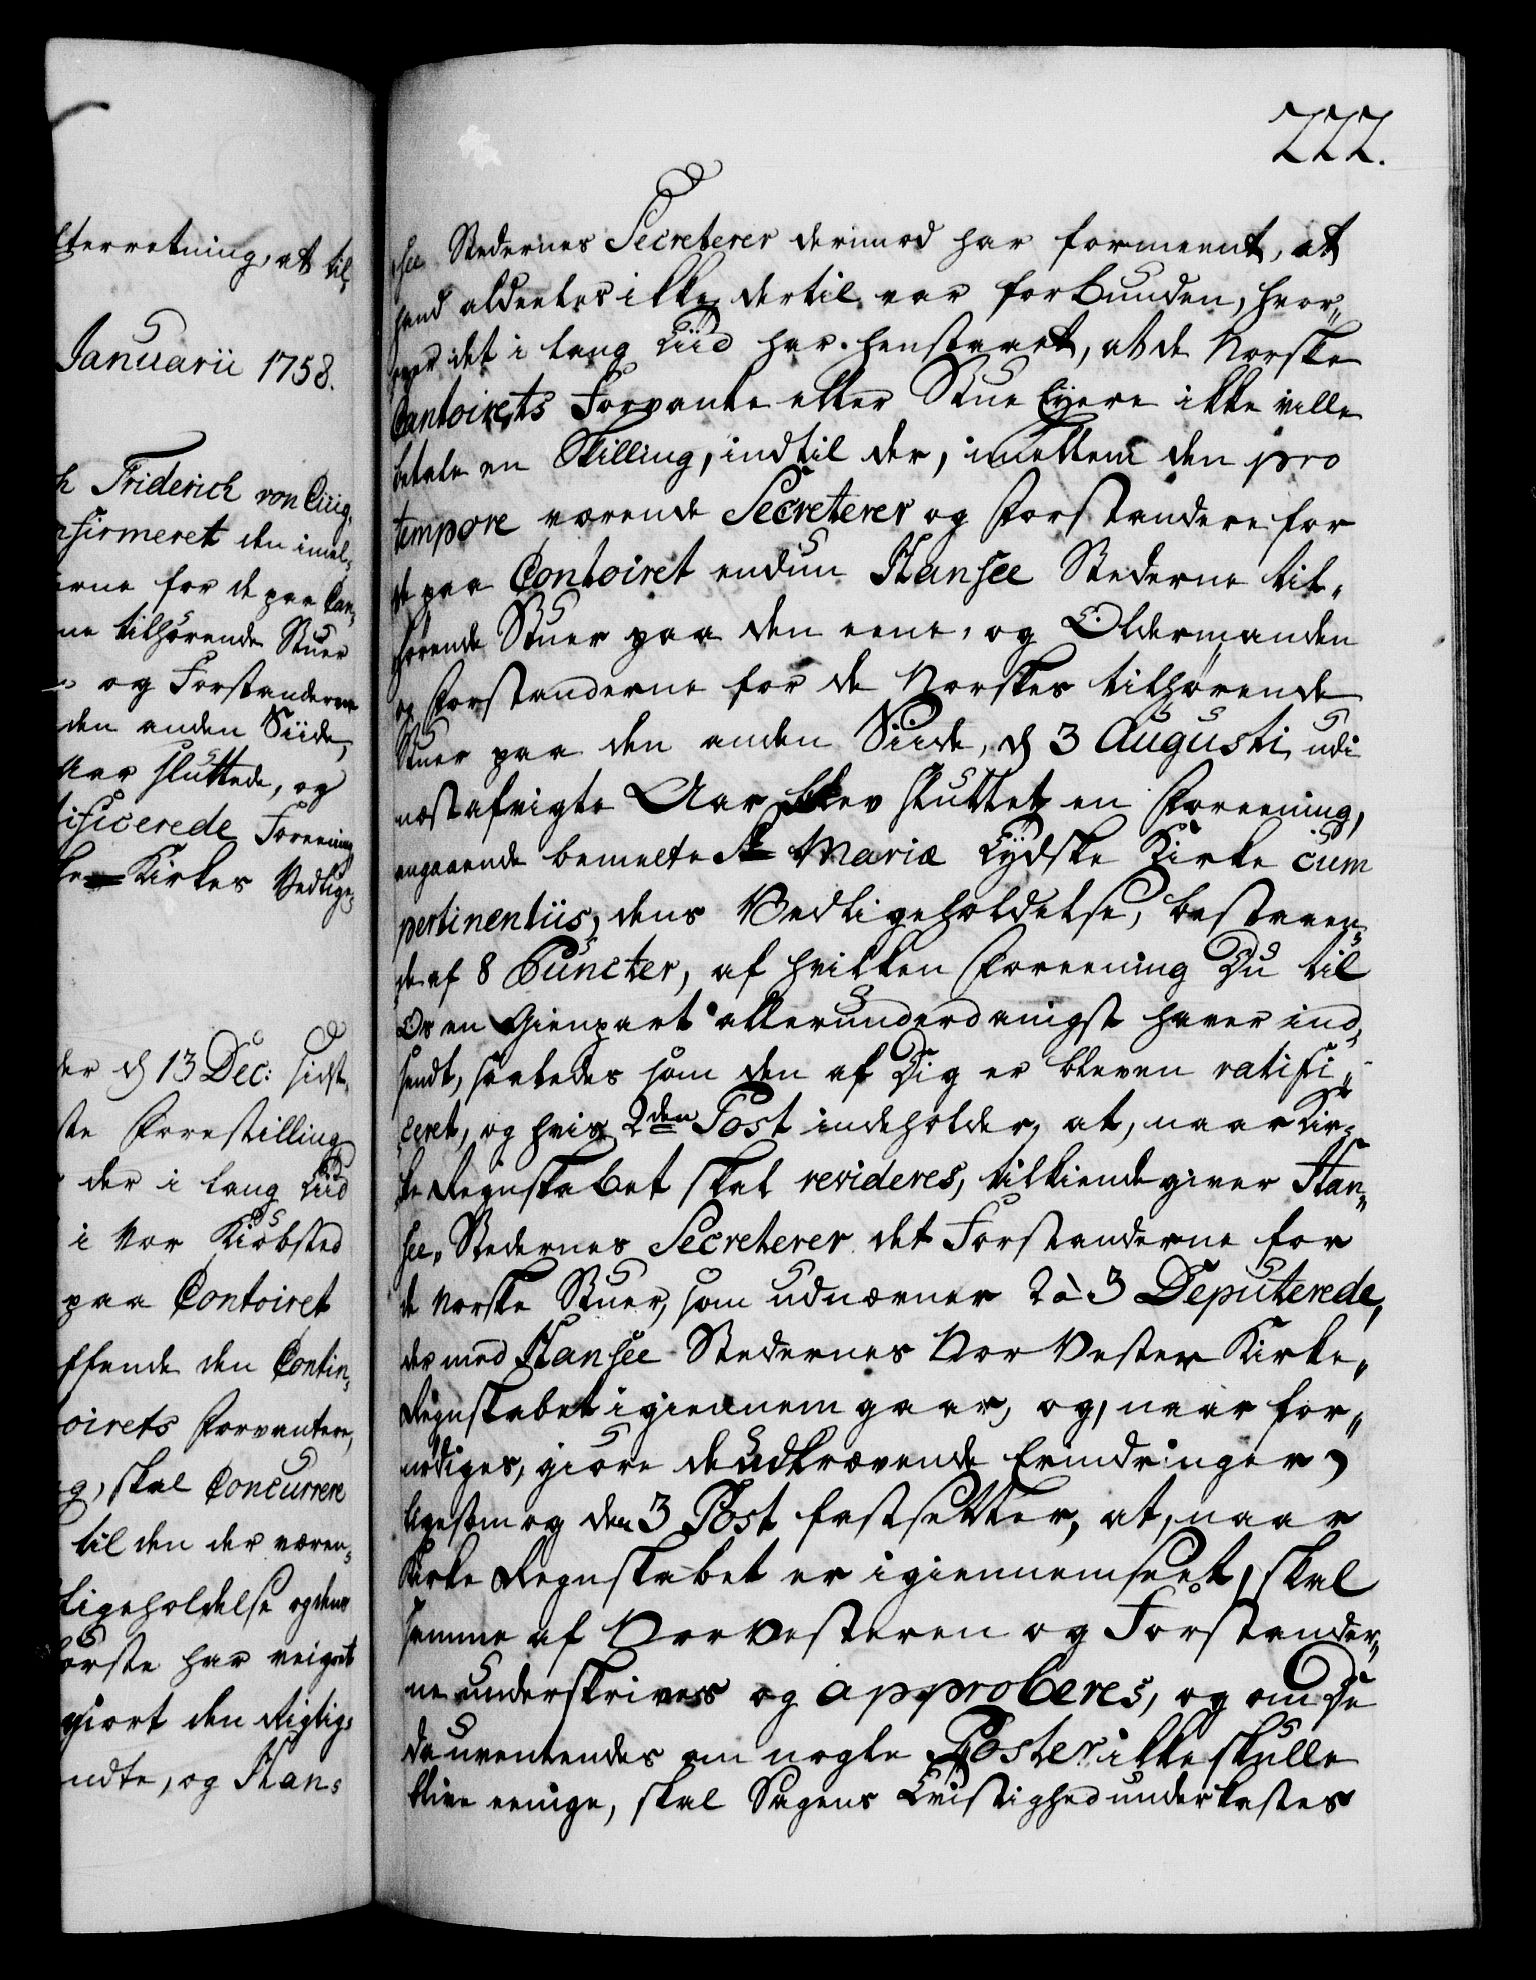 fterretning, at til,
Januarii 1758.
h Friderich von Ciig,
nfirmeret den imel,
erne for de paa Con,
ne tilhørende Stuer
og Forstanderne
den anden Siide,
Aar sluttede, og
tificerede Foreening
ke Kirkes Vedlige,
der d 13 Dec: sidst,
ste Forestilling
der i lang Tiid
i Vor Kiøbsted
paa Contoiret
ffende den Contin,
oirets Forvantere,
g, skal Concurrere
til den der væren,
ligeholdelse og dens
første har veigret
giort den rigtig,
ndte, og Han,
222.
see Stedernes Secreterer derimod har formeent, at
hand aldeeles ikke dertil var forbunden, hvor,,
over det i lang Tiid har henstaaet, at de Norske
Contoirets Forvante eller Stue Eyere ikke ville
betale en Skilling, indtil der, imellem den pro
tempore værende Secreterer og Forstandere for
de paa Contoiret endnu Hansee Stederne til,
hørende Stuer paa den eene, og Oldermanden
og Forstanderne for de Norskes tilhørende
Stuer paa den anden Siide, d 3 Augusti udi
næstafvigte Aar blev sluttet en Foreening,
angaaende bemelte St Mariæ Tydske Kirke cum
pertinentiis, dens Vedligeholdelse, bestaaen,
de af 8 Puncter, af hvilken Foreening Du til
Os en Gienpart allerunderdanigst haver ind,
sendt, saaledes som den af Dig er bleven ratifi,,
ceret, og hvis 2den Post indeholder, at, naar Kir,
ke Regnskabet skal revideres, tilkiendegiver Han,,
see, Stedernes Secreterer det Forstanderne for
de Norske Stuer, som udnævner 2 à 3 Deputerede,
der med Hansee Stedernes Nor Vester Kirke,,
Regnskabet igiennemgaar, og, naar for,,
nødiges, giøre de udkrævende Erindringer,
ligesom og den 3 Post fastsetter, at, naar
Kirke Regnskabet er igiennemseet, skal
samme af Nor Vesteren og Forstander,,
ne underskrives og approberes, og om De
da uventendes om nogle Poster ikke skulle
blive eenige, skal Sagens Tvistighed underkastes